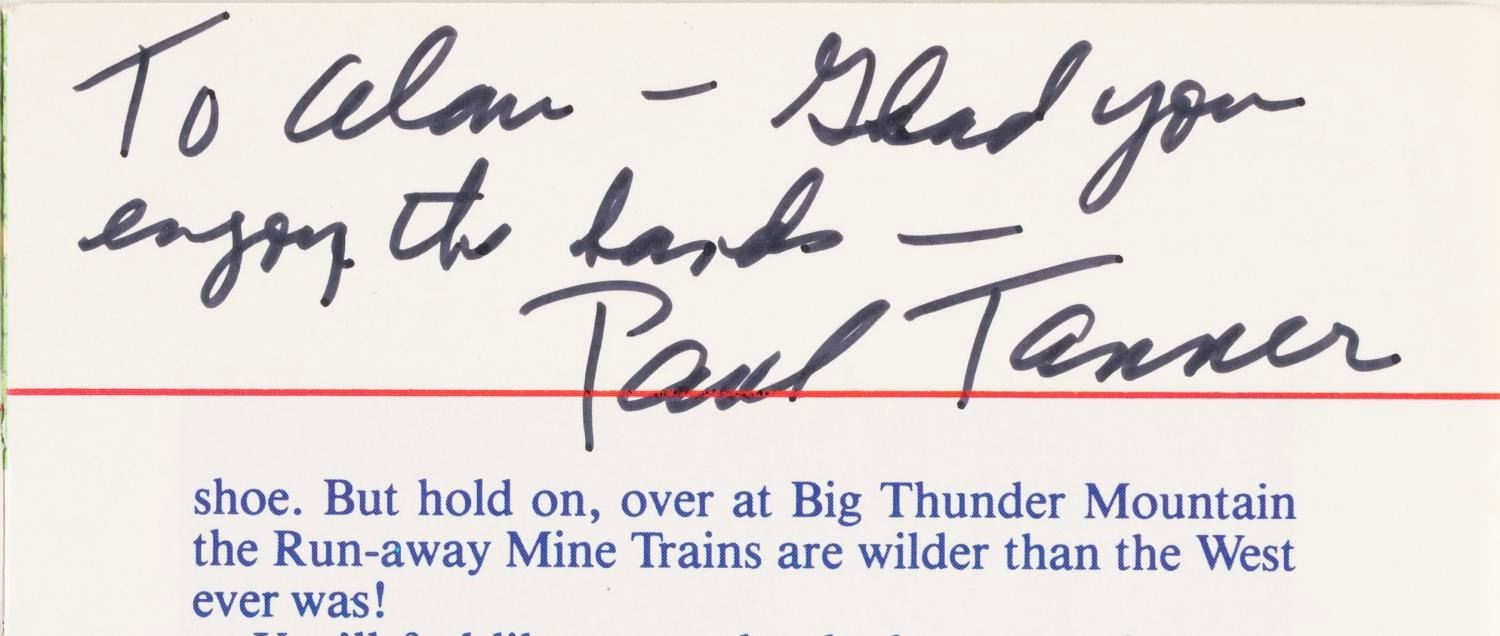 To Alan - Glad you
enjoy the bands -
Paul Tanner
shoe. But hold on, over at Big Thunder Mountain
the Run-away Mine Trains are wilder than the West
ever was!